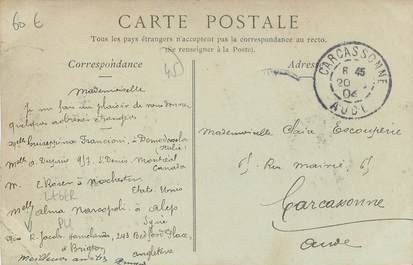 60 €
CARTE POSTALE
Tous les pays étrangers n'acceptent pas la correspondance au recto.
(Se renseigner à la Poste).
Correspondance
Adresse
CARCASSONNE
8 45
20
04
AUDE
Mademoiselle
Je me fais un plaisir de vous donner
quelques adresses étrangères
Giuseppina Francioni, à Domodossola
Italie
Melle A. 913, S. Denis Montréal
Canada
M. à Rochester
Etats Unis
Melle Salma à Alep
Syrie
Jacob, 243 Bedford Place,
à Brigton Angleterre
Meilleures amitiés
Mademoiselle Claire Escouperie
65 Rue Mairie 65
Carcassonne
Aude